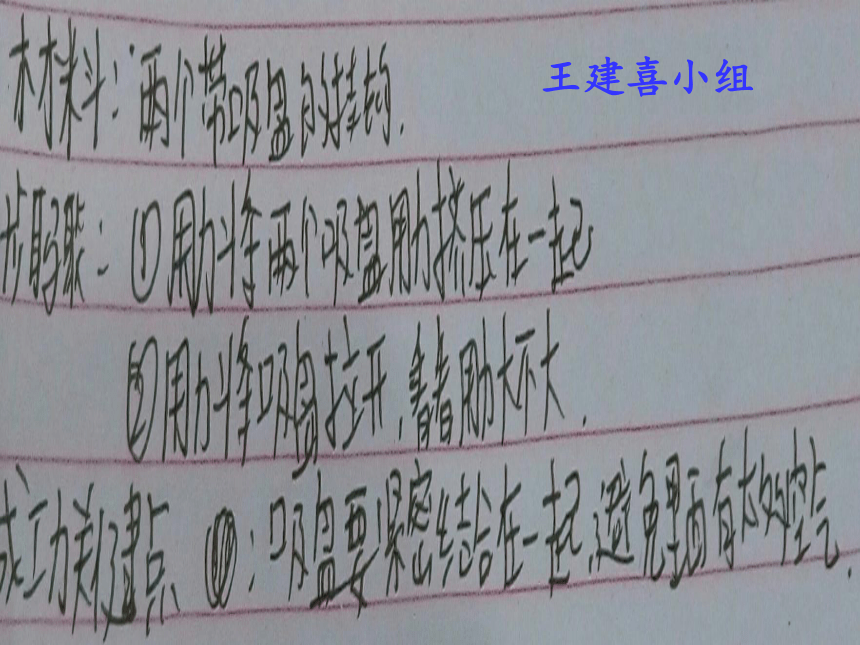 王建喜小组
材料：两个带吸盘的挂钩.
步骤：①用力将两个吸盘用力挤压在一起
②用力将吸盘拉开,看看用力大不大.
成功关键点 : 吸盘要紧密结合在一起,避免里面有太多的空气.